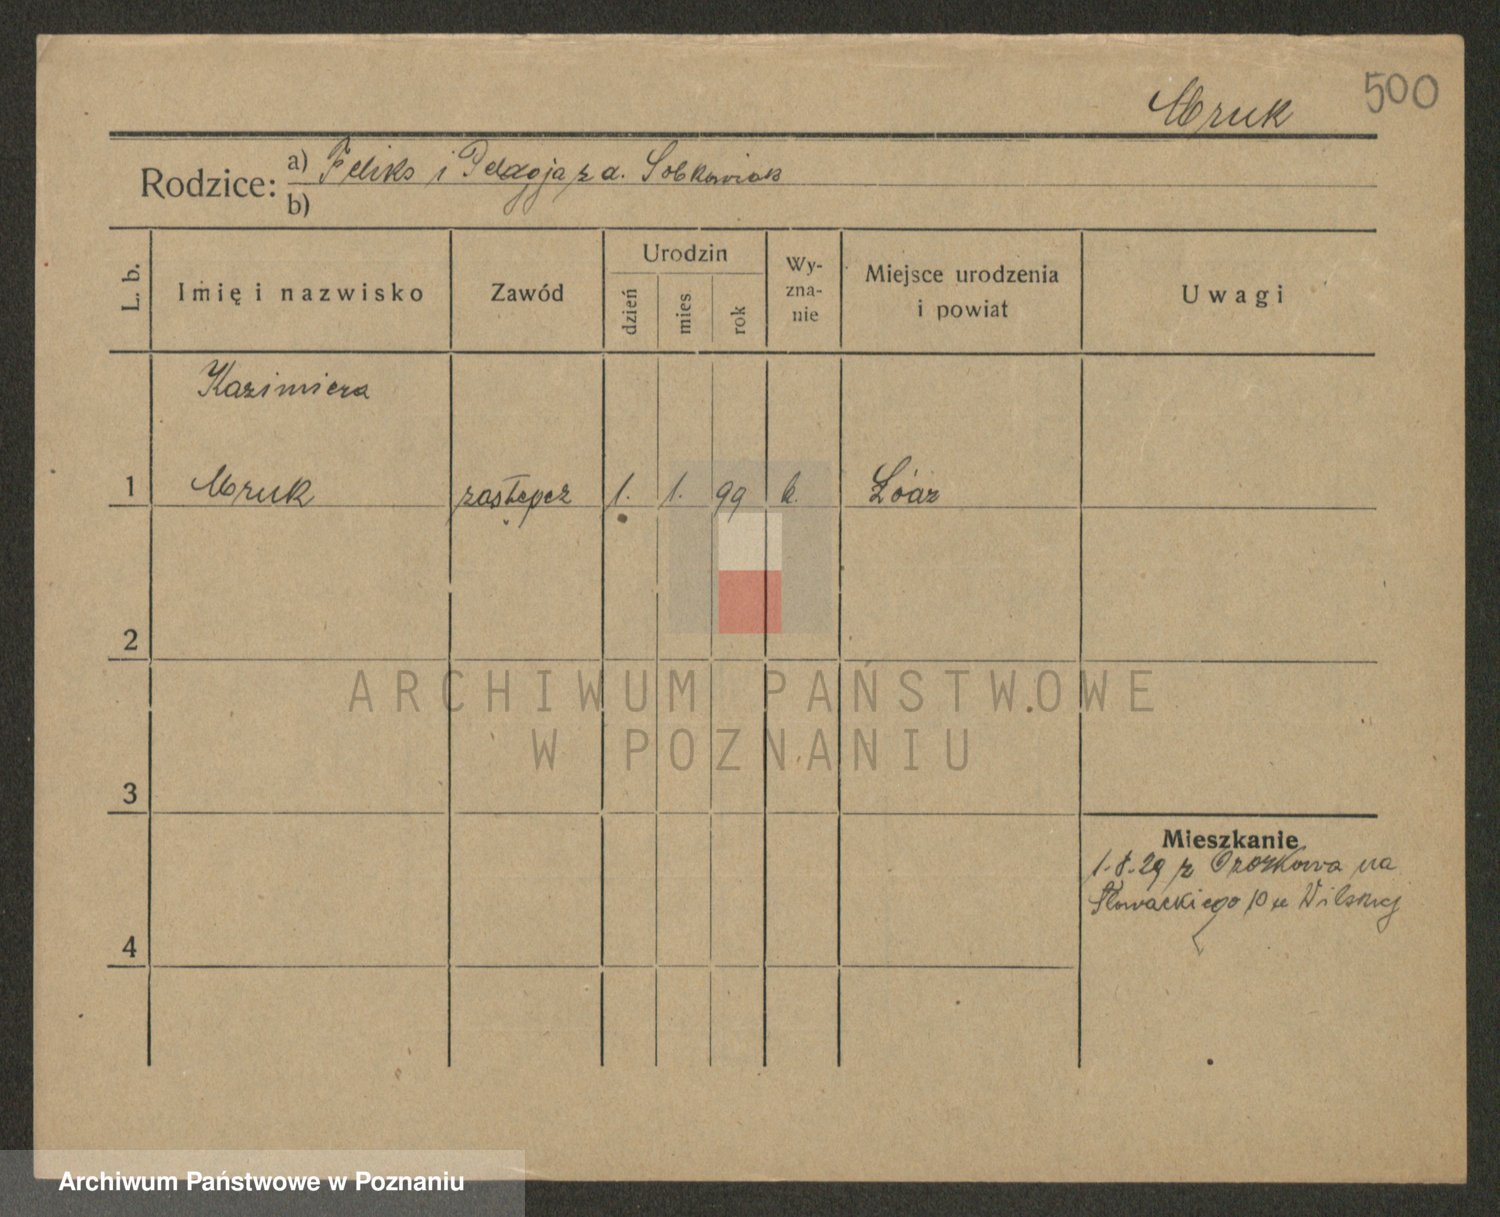 500
Mruk
Rodzice: a) Feliks i Pelagja z d. Sobkowiak
b)
L. b.
Imię i nazwisko
Zawód
Urodzin
dzień
mies
rok
Wy-
zna-
nie
Miejsce urodzenia
i powiat
Uwagi
Kazimiera
1 Mruk zastępcz 1. 1. 99 k. Łódź
2
ARCHIWUM PAŃSTWOWE
W POZNANIU
3
Mieszkanie
1.8.29 z Ozorkowa na
Słowackiego 10 u Wilskiej
4
Archiwum Państwowe w Poznaniu